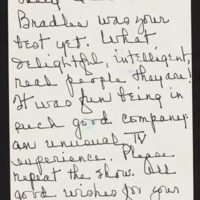 Bradlee was your
best yet. What
delightful, intelligent,
real people they are!
It was fun being in
such good company
an unusual TV
experience. Please
repeat the show. All
good wishes for your